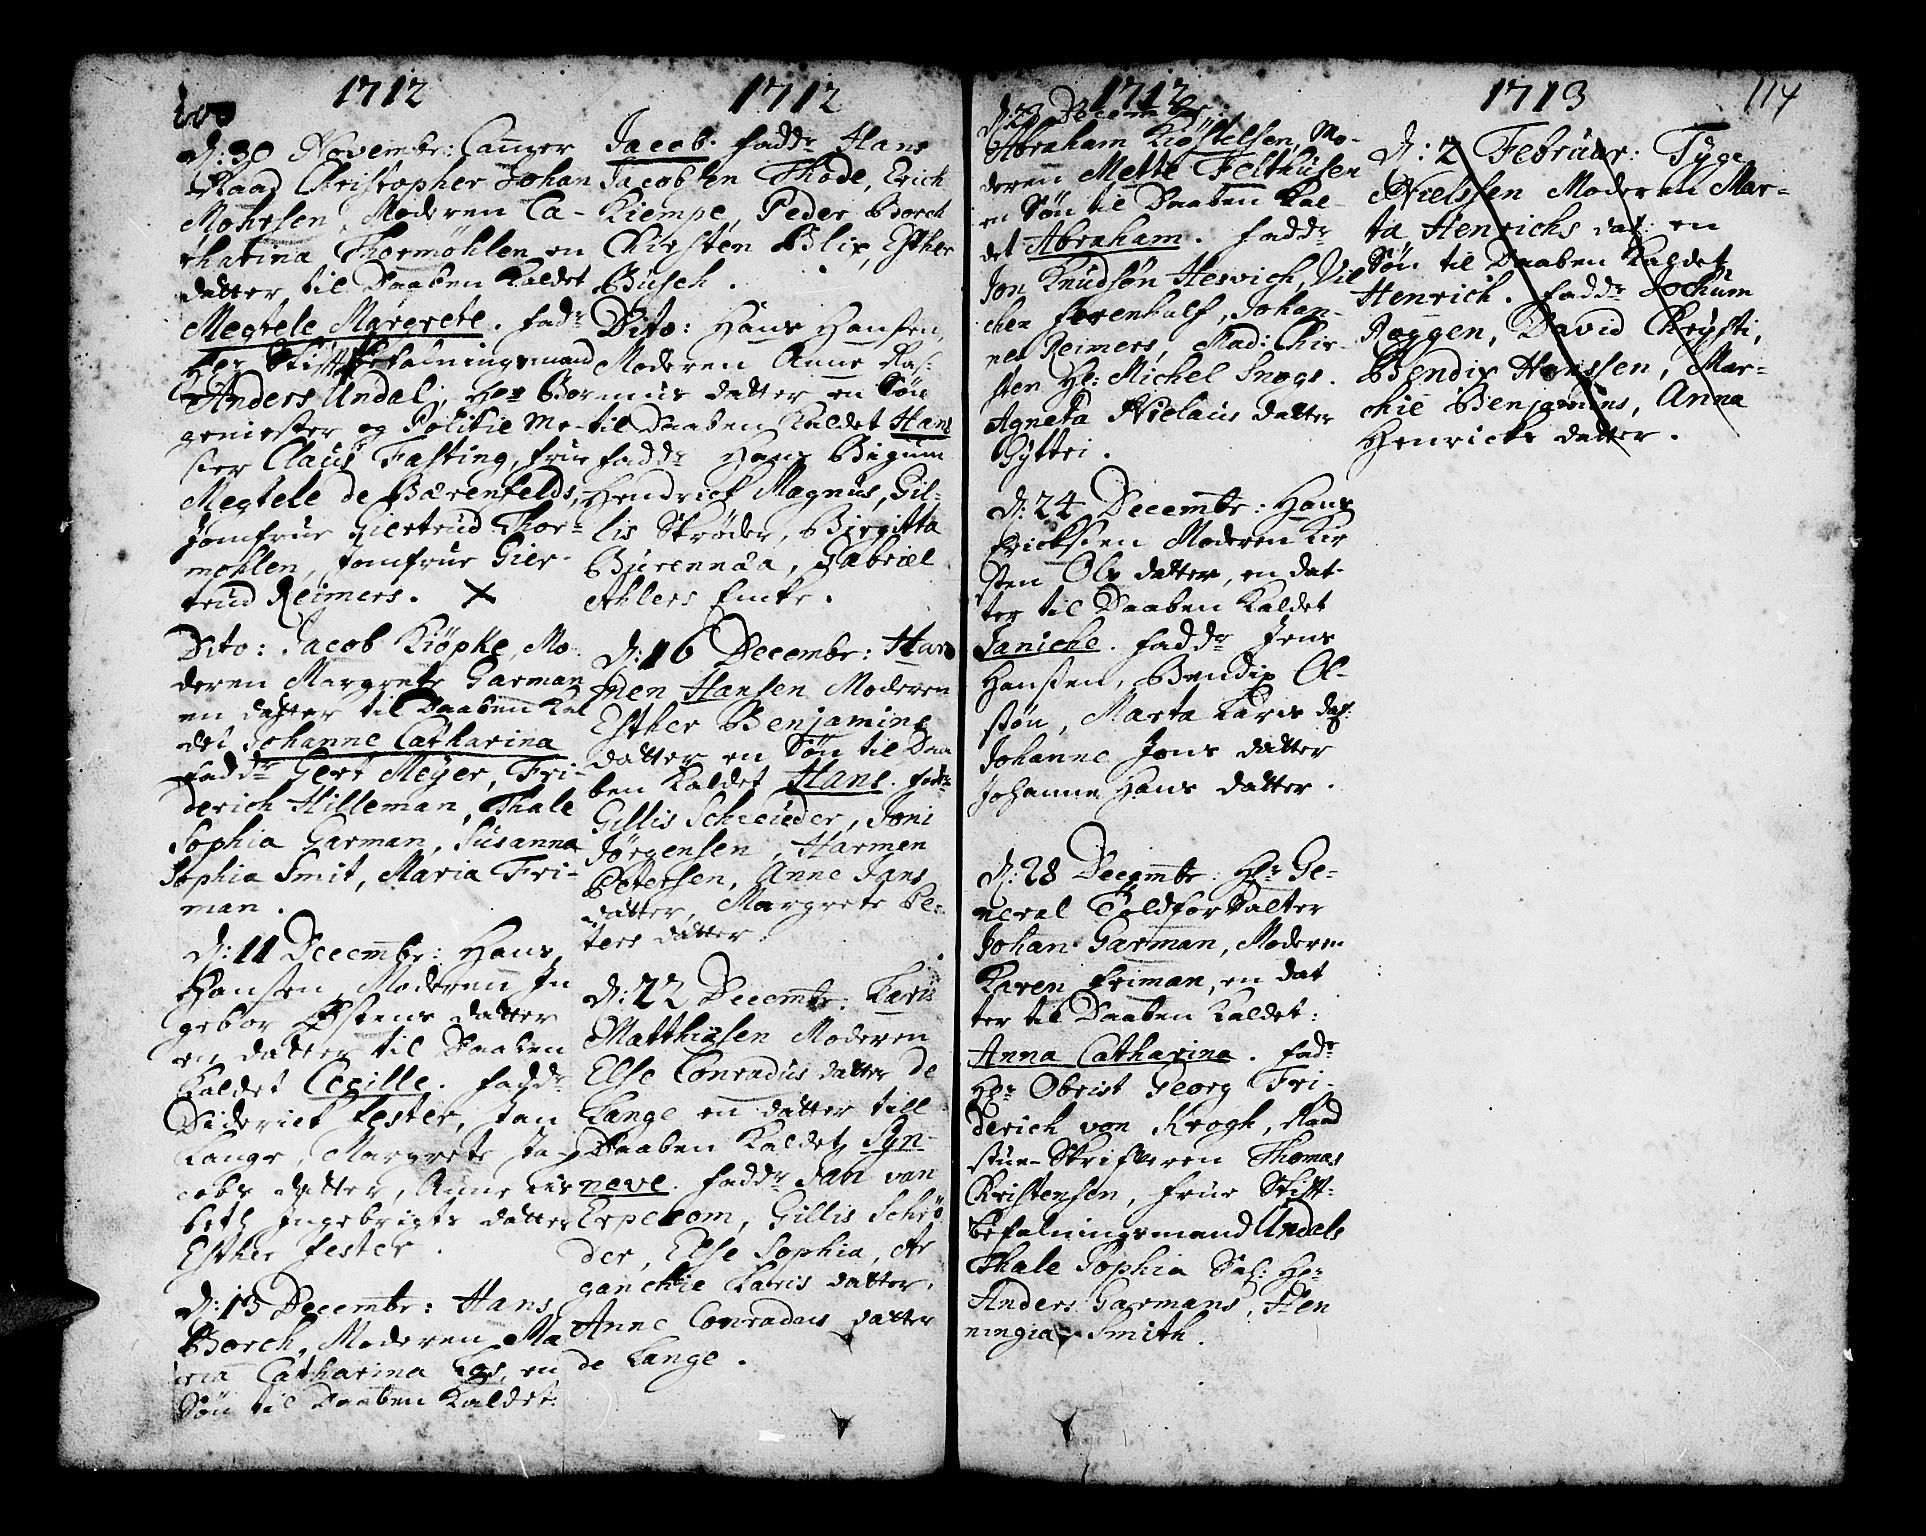 1712
d: 30 Novembr: Cammer
Raad Christopher Johan
Mohrsen, Moderen Ca-
tharina Thormöhlen en
datter til Daaben Kaldet
Megtele Margrete. fadr
Hr Stiftbefalningsmand
Anders Undal, Hr Bor
gemester og Politie Me-
ster Claus Fasting, frue
Megtele de Bærenfelds,
Jomfrue Giertrud Thor-
mohlen, Jomfrue Gier-
trud Reimers. X
Dito: Jacob Kiöpke, Mo-
deren Margrete Garman
en datter til Daaben Kal
det Johanne Catharina
faddr Gert Meÿer, Fri-
derich Hilleman, Thale
Sophia Garman, Susanna
Sophia Smit, Maria Fri-
man.
d: 11 Decembr: Hans
Hansen, Moderen In
gebor Østens datter
en datter til Daaben
Kaldet Cecille. faddr
Diderick fester, Jan
Lange, Margrete Ja-
cobs datter, Anne Lis
beth Ingebrigts datter
Esther fester.
d: 13 Decembr: Hans
Borch, Moderen Ma
ria Catharina, en
Søn til Daaben Kaldet:
1712
Jacob. faddr Hans
Jacobsen Thode, Erich
Kiempe, Peder Borch
Kirsten Blix, Esther
Busch.
Dito: Hans Hansen,
Moderen Anne Ras-
mus datter en Søn
til Daaben Kaldet Hans
faddr Hans Bigum
Hendrick Magnus, Gil-
lis Skrøder, Birgitta
Biørennaa, Gabriel
Ahlers Enke.
d: 16 Decembr: Har
men Hansen Moderen
Esther Benjamins
datter en Søn til Daa
ben Kaldet Hans. faddr
Gillis Schreuder, Joni
Jörgensen, Harmen
Petersen, Anne Jans
datter, Margrete Pe-
ters datter.
d: 22 Decembr: Laris
Matthiasen Moderen
Else Conradus datter de
Lange en datter till
Daaben Kaldet Syn-
neve. faddr Jan van
Erpecom, Gillis Schrö
der, Else Sophia, Ar
ganchie Laris datter,
Anne Conradus datter
de Lange.
1712
d: 23 Decembr:
Abraham Kiøstelsen, Mo-
deren Mette Felthusen
en Søn til Daaben Kal-
det Abraham. faddr
Jon Knudsøn Hesvich, Vil
chen forenhalf, Johan-
nes Reimers, Mad: Kir
sten Hr: Michel Snogs.
Agneta Nielaus datter
Gyttri.
d: 24 Decembr: Hans
Ericksen Moderen Kir
sten Ols datter, en dat-
ter til Daaben Kaldet
Janicke. faddr Jens
Hansen, Bendix Ol-
søn, Marta Laris dat:
Johanne Jens datter
Johanna Hans datter.
d: 28 Decembr: Hr Ge-
neral Toldforvalter
Johan Garman, Moderen
Karen Friman, en dat
ter til Daaben Kaldet:
Anna Catharina. fadr
Hr Obrist Georg Fri-
derich von Krogh, Raad
stue-Skriferen Thomas
Kristensen, frue Stift-
befalningsmand Undals
Thale Sophia Sal: Hr
Anders Garmans, Hen
ningia Smith.
1713
114
d: 2 Februar: Tÿge
Nielssen Moderen Mar-
ta Henrichs dat: en
Søn til Daaben Kaldet
Henrich. faddr Jochum
Roggen, David Chrysti,
Bendix Hanssen, Mar-
chie Benjamins, Anna
Henricks datter.